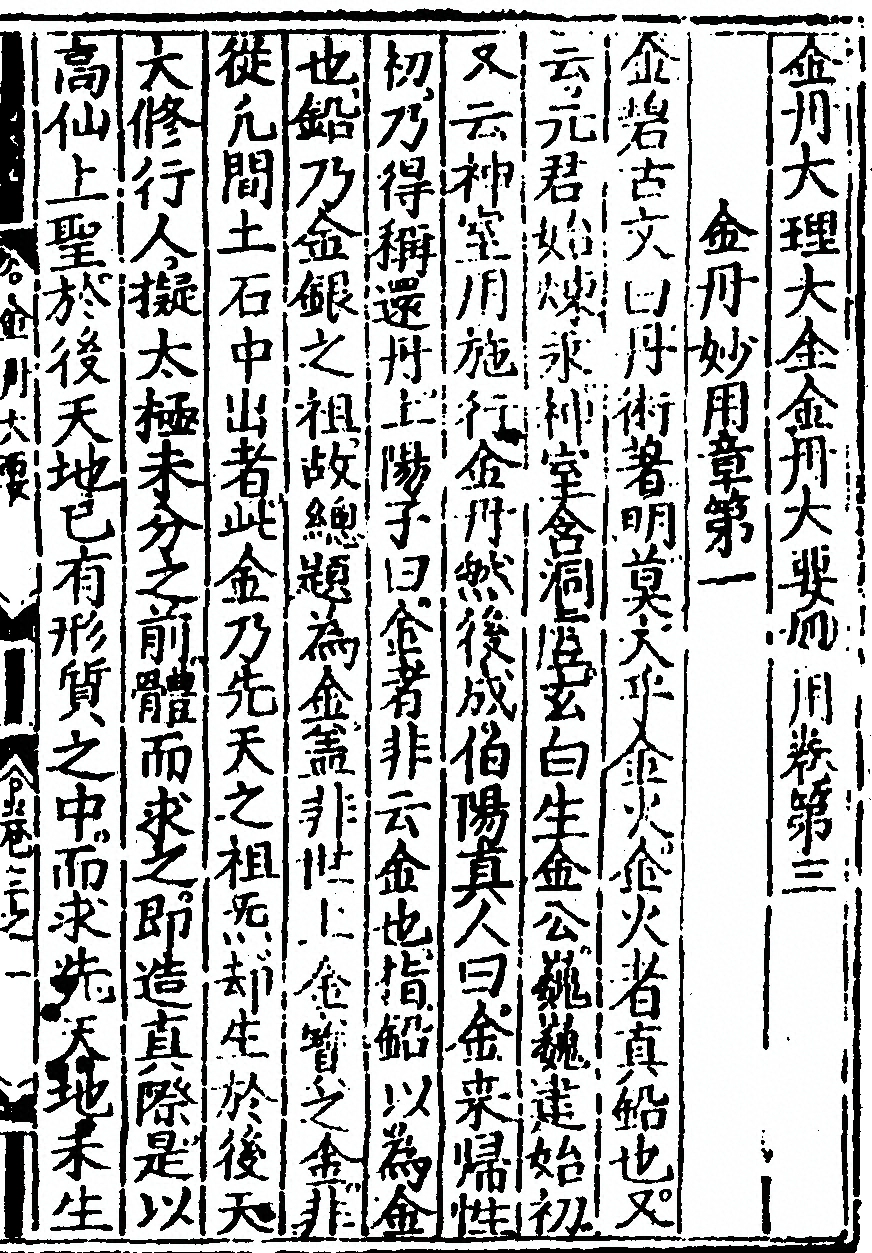 金丹大理大金金丹大要 用卷第三
金丹妙用章第一
金碧古文曰丹術著明莫大乎金火金火者真鉛也又
云元君始煉汞神室含洞虛玄白生金公巍巍建始初
又云神室用施行金丹然後成伯陽真人曰金来歸性
初乃得稱還丹上陽子曰金者非云金也指鉛以為金
也鉛乃金銀之祖故總題為金盖非世上金寶之金非
從凡間土石中出者此金乃先天之祖炁却生於後天
大修行人擬太極未分之前體而求之即造真際是以
高仙上聖於後天地已有形質之中而求先天地未生
金丹大要
卷三之一